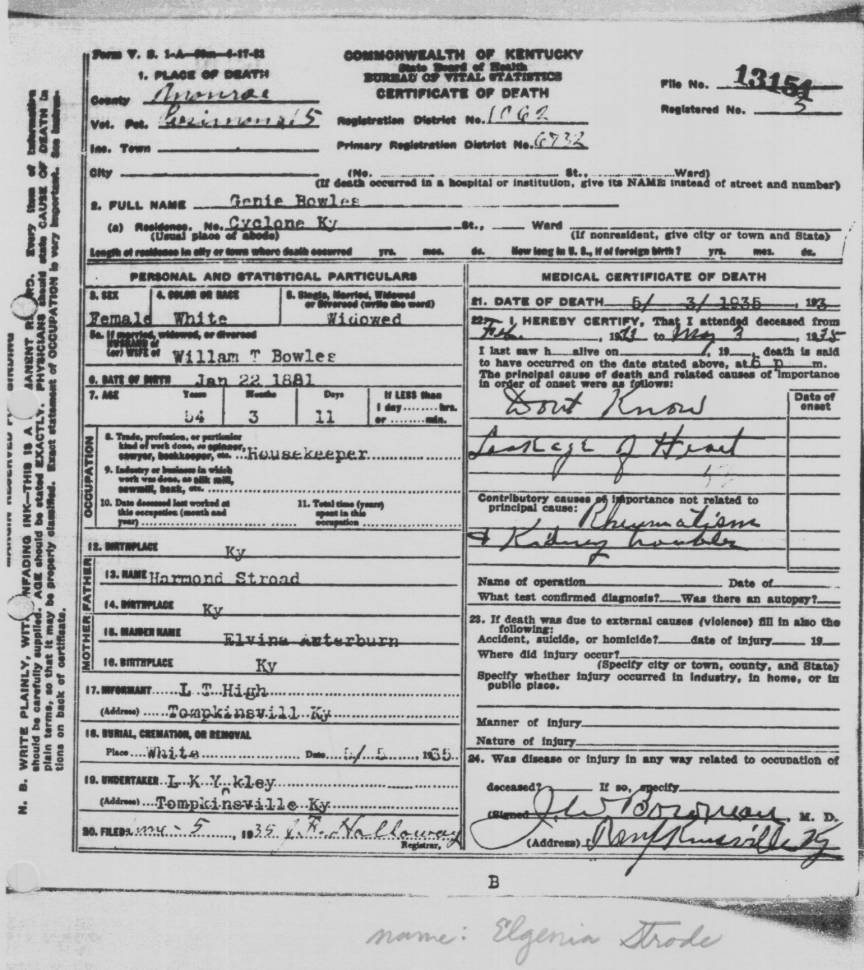 Form V. S. 1-A
COMMONWEALTH OF KENTUCKY
State Board of Health
BUREAU OF VITAL STATISTICS
CERTIFICATE OF DEATH
File No. 13154
Registered No. 5
1. PLACE OF DEATH
County Monroe
Vot. Pct.
Inc. Town
City
Registration District No. 1062
Primary Registration District No. 6732
(No. St., Ward)
(If death occurred in a hospital or institution, give its NAME instead of street and number)
2. FULL NAME Genie Bowles
(a) Residence. No. Cyclone Ky St., Ward
(Usual place of abode) (If nonresident, give city or town and State)
Length of residence in city or town where death occurred yrs. mos. ds. How long in U. S., if of foreign birth? yrs. mos. ds.
PERSONAL AND STATISTICAL PARTICULARS
3. SEX 4. COLOR OR RACE 5. Single, Married, Widowed
or Divorced (write the word)
Female White Widowed
5a. If married, widowed, or divorced
HUSBAND of
(or) WIFE of Willam T Bowles
6. DATE OF BIRTH Jan 22 1881
7. AGE Years Months Days If LESS than
1 day hrs.
54 3 11 or min.
OCCUPATION
8. Trade, profession, or particular
kind of work done, as spinner,
sawyer, bookkeeper, etc. Housekeeper
9. Industry or business in which
work was done, as silk mill,
sawmill, bank, etc.
10. Date deceased last worked at
this occupation (month and
year)
11. Total time (years)
spent in this
occupation
12. BIRTHPLACE Ky
FATHER
13. NAME Harmond Stroad
14. BIRTHPLACE Ky
MOTHER
15. MAIDEN NAME Elvina Arterburn
16. BIRTHPLACE Ky
17. INFORMANT L T High
(Address) Tompkinsvill Ky
18. BURIAL, CREMATION, OR REMOVAL
Place White Date 5/ 5 1935
19. UNDERTAKER L K Y kley
(Address) Tompkinsville Ky
20. FILED 5, 1935 J. F. Holloway
Registrar.
MEDICAL CERTIFICATE OF DEATH
21. DATE OF DEATH 5/ 3/ 1935, 193
22. I, HEREBY CERTIFY, That I attended deceased from
to May 3, 1935
I last saw h alive on , 19 , death is said
to have occurred on the date stated above, at 6 p m.
The principal cause of death and related causes of importance
in order of onset were as follows:
Date of
onset
Dont Know
Leakage of Heart
Contributory causes of importance not related to
principal cause: Rheumatism
& Kidney trouble
Name of operation Date of
What test confirmed diagnosis? Was there an autopsy?
23. If death was due to external causes (violence) fill in also the
following:
Accident, suicide, or homicide? date of injury 19
Where did injury occur?
(Specify city or town, county, and State)
Specify whether injury occurred in industry, in home, or in
public place.
Manner of injury
Nature of injury
24. Was disease or injury in any way related to occupation of
deceased? If so, specify
(Signed) M. D.
(Address)
B
name: Elgenia Strode
N. B. WRITE PLAINLY, WITH UNFADING INK—THIS IS A PERMANENT RECORD. Every item of information
should be carefully supplied. AGE should be stated EXACTLY. PHYSICIANS should state CAUSE OF DEATH in
plain terms, so that it may be properly classified. Exact statement of OCCUPATION is very important. See instruc-
tions on back of certificate.